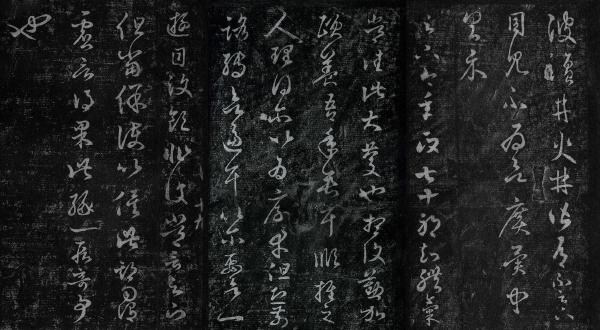 彼鹽井火井皆有不足下
目見不為欲廣異聞
具示
足下今年政七十耶知體氣
常佳此大慶也想復懃加
頤養吾年垂耳順推之
人理得爾以為厚幸但恐前
路轉欲逼耳以爾要欲一
遊目汶領非復常言足下
但當保護以俟此期勿謂
虛言得果此緣一段奇事
也